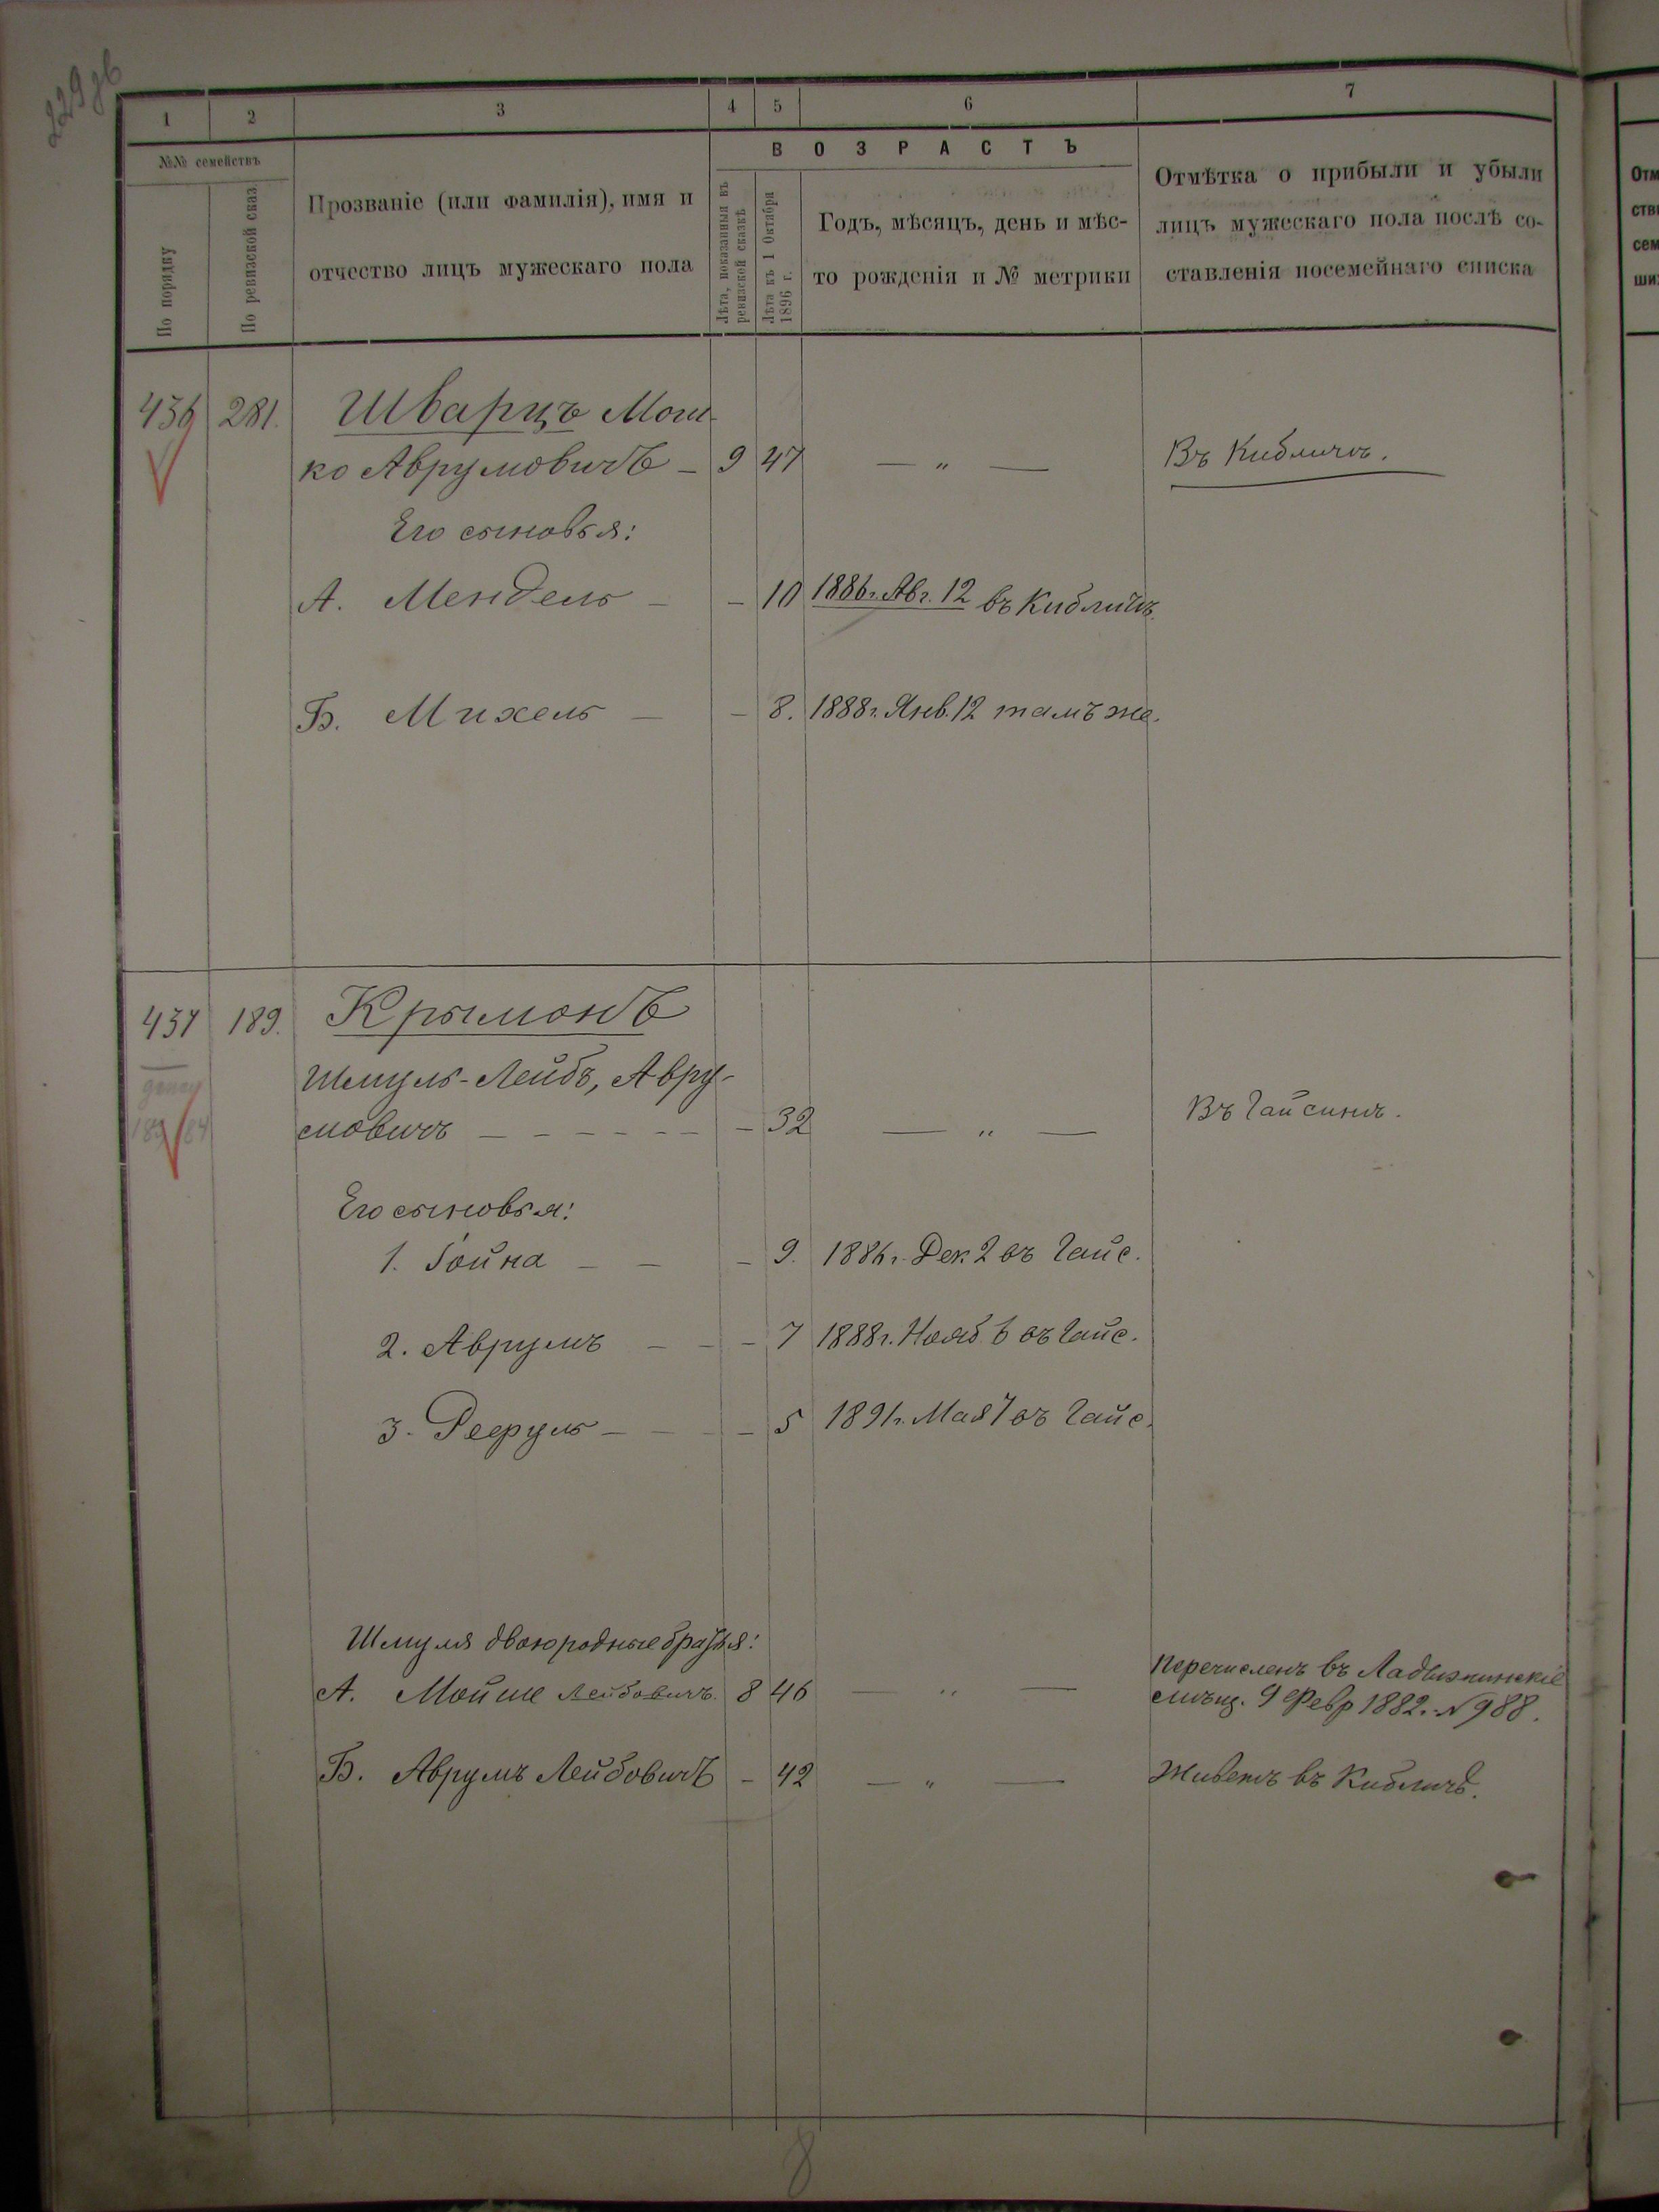 229 об
1 2 3 4 5 6 7
№№ семействъ
По порядку
По ревизской сказ
Прозваніе (или фамилія), имя и
отчество лицъ мужескаго пола
ВОЗРАСТЪ
Лѣта, показанныя въ
ревизской сказкѣ
Лѣта къ 1 Октября
1896 г.
Годъ, мѣсяцъ, день и мѣс-
то рожденія и № метрики
Отмѣтка о прибыли и убыли
лицъ мужескаго пола послѣ со-
ставленія посемейнаго списка
436 281. Шварцъ Мош-
ко Аврумовичъ – 9 47 — „ — Въ Кибличѣ.
Его сыновья:
А. Мендель – – 10 1886 г. Авг. 12 въ Кибличѣ.
Б. Михель – – 8. 1888 г. Янв. 12 тамъ же.
437 189. Крымонъ
Шмуль-Лейбъ, Авру-
мовичъ – – – – – – – 32 — „ — Въ Гайсинѣ.
Его сыновья:
1. Іойна – – – 9. 1886 г. Дек. 2 въ Гайс.
2. Аврумъ – – – 7 1888 г. Нояб. 6 въ Гайс.
3. – – – 5 1891 г. Мая 7 въ Гайс.
Шмуля двоюродные братья:
А. Мойше Лейбовичъ. 8 46 — „ — Перечисленъ въ Ладыжинскіе
мѣщ. 9 Февр 1882. № 988.
Б. Аврумъ Лейбовичъ – 42 — „ — Живетъ въ Кибличѣ.
8